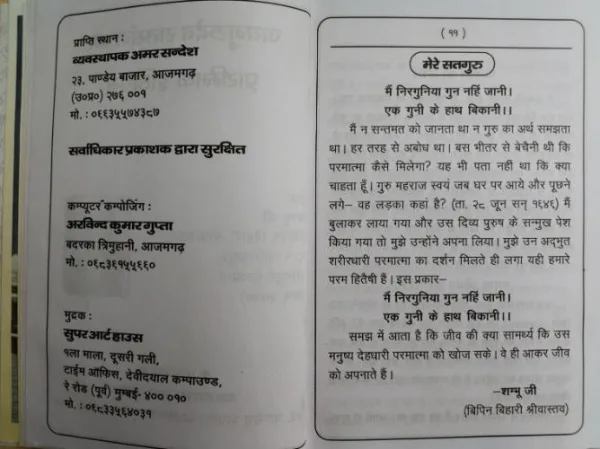 प्राप्ति स्थान :
व्यवस्थापक अमर सन्देश
२३. पाण्डेय बाजार, आजमगढ़
(उ०प्र०) २७६ ००१
मो. : ०६६३५५७४३८७
सर्वाधिकार प्रकाशक द्वारा सुरक्षित
कम्प्यूटर कम्पोजिंग :
अरविन्द कुमार गुप्ता
बदरका त्रिमुहानी, आजमगढ़
मो. : ०६८३६१५५६६०
मुद्रक :
सुपर आर्ट हाउस
१ला माला, दूसरी गली,
टाईम ऑफिस, देवीदयाल कम्पाउण्ड,
रे रोड (पूर्व) मुम्बई- ४०० ०१०
मो. : ०६८३३५६४०३१
( ११ )
मेरे सतगुरु
मैं निरगुनिया गुन नहिं जानी।
एक गुनी के हाथ बिकानी।।
मैं न सन्तमत को जानता था न गुरु का अर्थ समझता
था। हर तरह से अबोध था। बस भीतर से बेचैनी थी कि
परमात्मा कैसे मिलेगा? यह भी पता नहीं था कि क्या
चाहता हूँ। गुरु महराज स्वयं जब घर पर आये और पूछने
लगे– वह लड़का कहां है? (ता. २८ जून सन् १६४६) मैं
बुलाकर लाया गया और उस दिव्य पुरुष के सन्मुख पेश
किया गया तो मुझे उन्होंने अपना लिया। मुझे उन अद्‌भुत
शरीरधारी परमात्मा का दर्शन मिलते ही लगा यही हमारे
परम हितैषी हैं। इस प्रकार–
मैं निरगुनिया गुन नहिं जानी।
एक गुनी के हाथ बिकानी।।
समझ में आता है कि जीव की क्या सामर्थ्य कि उस
मनुष्य देहधारी परमात्मा को खोज सके। वे ही आकर जीव
को अपनाते हैं।
–शम्भू जी
(बिपिन बिहारी श्रीवास्तव)